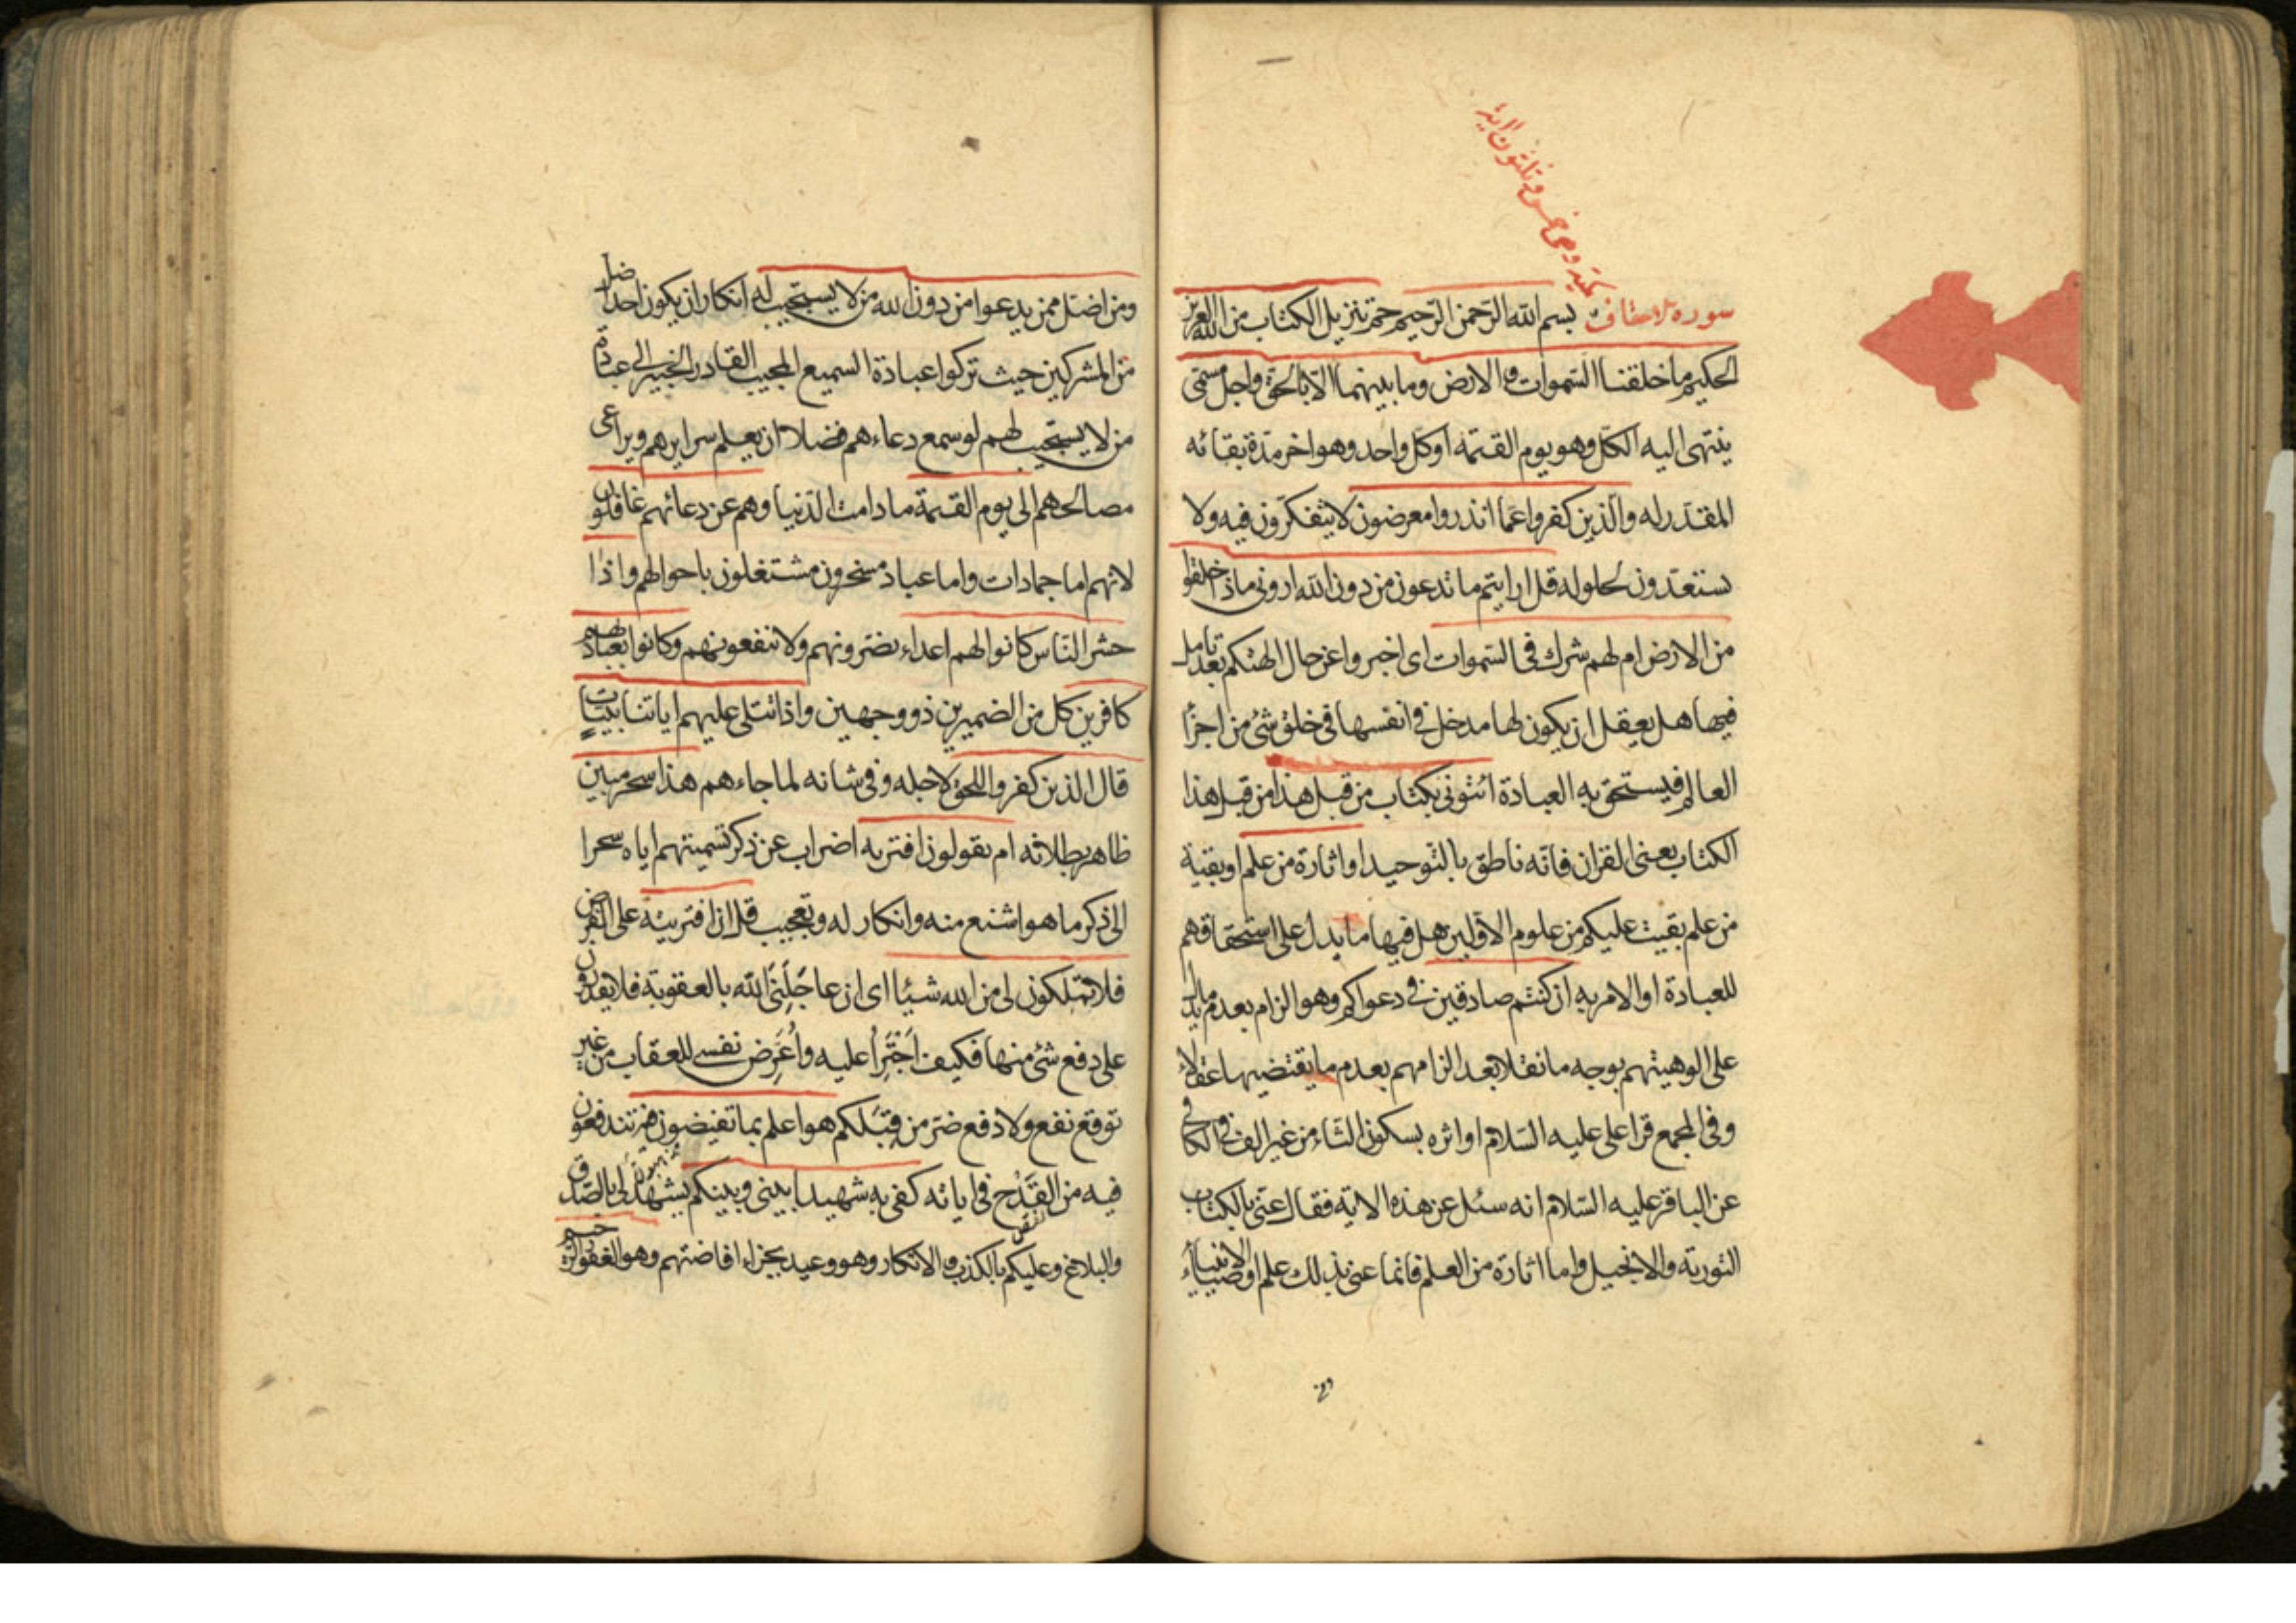 مكية وهي خمس وثلثون اية
سورة الاحقاف بسم الله الرحمن الرحيم حم تنزيل الكتاب من الله العزيز
الحكيم ما خلقنا السموات والارض وما بينهما الا بالحق واجل مسمى
ينتهى اليه الكل وهو يوم القيمة او كل واحد وهو اخر مدة بقائه
المقدر له والذين كفروا عما انذروا معرضون لا يتفكرون فيه ولا
يستعدون لحلوله قل ارايتم ما تدعون من دون الله اروني ماذا خلقوا
من الارض ام لهم شرك في السموات اي اخبروا عن حال الهتكم بعد تامل
فيها هل يعقل ان يكون لها مدخل في انفسها في خلق شئ من اجزا
العالم فيستحق به العبادة ائتوني بكتاب من قبل هذا من قبل هذا
الكتاب يعنى القران فانه ناطق بالتوحيد او اثارة من علم او بقية
من علم بقيت عليكم من علوم الاولين هل فيها ما يدل على استحقاقهم
للعبادة او الامر به ان كنتم صادقين في دعواكم وهو الزام بعدم ما يدل
على الوهيتهم بوجه ما نقلا بعد الزامهم بعدم ما يقتضيها عقلا
وفي المجمع قرا على عليه السلام او اثره بسكون الثاء من غير الف وفي الكافي
عن الباقر عليه السلام انه سئل عن هذه الاية فقال عنى بالكتاب
التورية والانجيل واما اثارة من العلم فانما عنى بذلك علم اوصياء الانبياء
ومن
ومن اضل ممن يدعوا من دون الله من لا يستجيب له انكار ان يكون احد اضل
من المشركين حيث تركوا عبادة السميع المجيب القادر الخبير الى عبادة
من لا يستجيب لهم لو سمع دعاءهم فضلا ان يعلم سرايرهم ويراعى
مصالحهم الى يوم القيمة ما دامت الدنيا وهم عن دعائهم غافلون
لانهم اما جمادات واما عباد مسخرون مشتغلون باحوالهم واذا
حشر الناس كانوا لهم اعداء يضرونهم ولا ينفعونهم وكانوا بعبادتهم
كافرين كل من الضميرين ذو وجهين واذا تتلى عليهم اياتنا بينات
قال الذين كفروا للحق لاجله وفي شانه لما جاءهم هذا سحر مبين
ظاهر بطلانه ام يقولون افتريه اضراب عن ذكر تسميتهم اياه سحرا
الى ذكر ما هو اشنع منه وانكار له وتعجيب قل ان افتريته على الفرض
فلا تملكون لي من الله شيئا اى ان عاجلني الله بالعقوبة فلا يقدرون
على دفع شئ منها فكيف اجترأ عليه واعرض نفسي للعقاب من غير
توقع نفع ولا دفع ضر من قبلكم هو اعلم بما تفيضون فيه تندفعون
فيه من القدح في اياته كفى به شهيدا بيني وبينكم يشهد لي بالصدق
والبلاغ وعليكم بالكذب والانكار وهو وعيد بجزاء افاضتهم وهو الغفور الرحيم